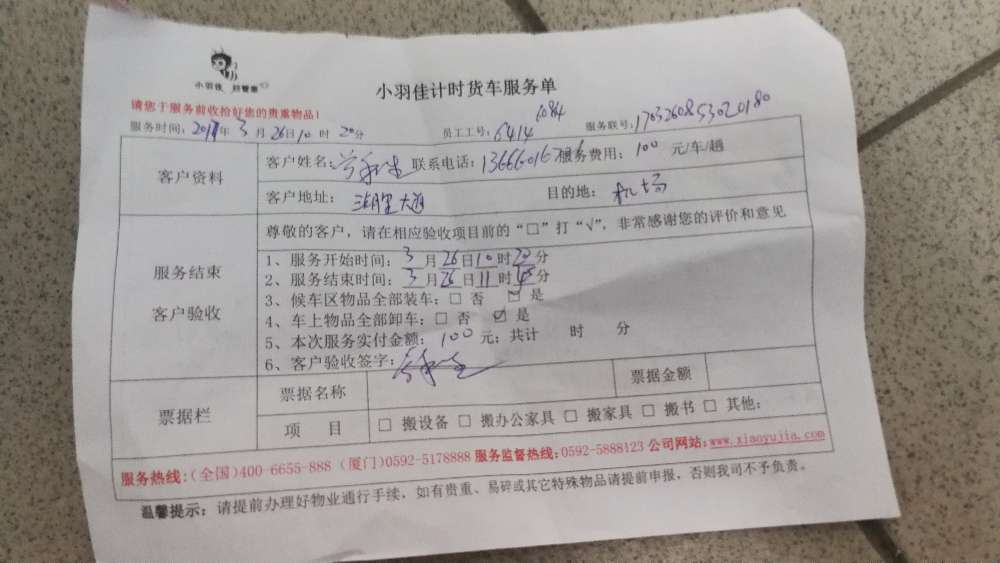 小羽佳 好管家
小羽佳计时货车服务单
请您于服务前收拾好您的贵重物品!
服务时间: 2017年 3 月 26日 10 时 20分 员工工号: 6414 6084 服务联号: 1703260853020180
客户资料
客户姓名: 联系电话: 服务费用: 100 元/车/趟
客户地址: 湖里大道 目的地: 机场
服务结束
客户验收
尊敬的客户,请在相应验收项目前的“□”打“√”,非常感谢您的评价和意见
1、服务开始时间: 3 月 26 日 10 时 20 分
2、服务结束时间: 3 月 26 日 11 时 分
3、候车区物品全部装车: □ 否 ☑ 是
4、车上物品全部卸车: □ 否 ☑ 是
5、本次服务实付金额: 100 元; 共计 时 分
6、客户验收签字:
票据栏
票据名称 票据金额
项 目 □ 搬设备 □ 搬办公家具 □ 搬家具 □ 搬书 □ 其他:
服务热线: (全国)400-6655-888 (厦门)0592-5178888 服务监督热线: 0592-5888123 公司网站: www.xiaoyujia.com
温馨提示: 请提前办理好物业通行手续, 如有贵重、易碎或其它特殊物品请提前申报, 否则我司不予负责。